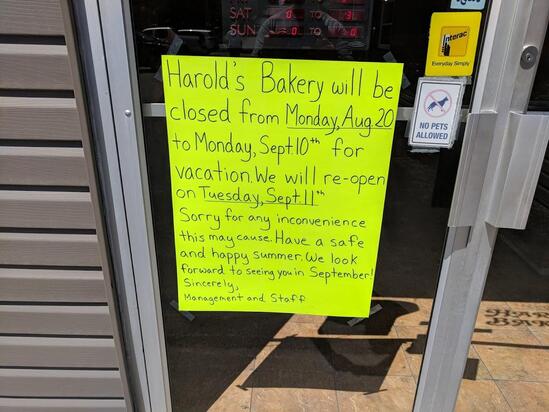 SAT
TO
SUN
TO
Interac
Everyday Simply
NO PETS
ALLOWED
Harold's Bakery will be
closed from Monday, Aug 20
to Monday, Sept.10th for
vacation. We will re-open
on Tuesday, Sept.11th
Sorry for any inconvenience
this may cause. Have a safe
and happy summer. We look
forward to seeing you in September!
Sincerely,
Management and Staff